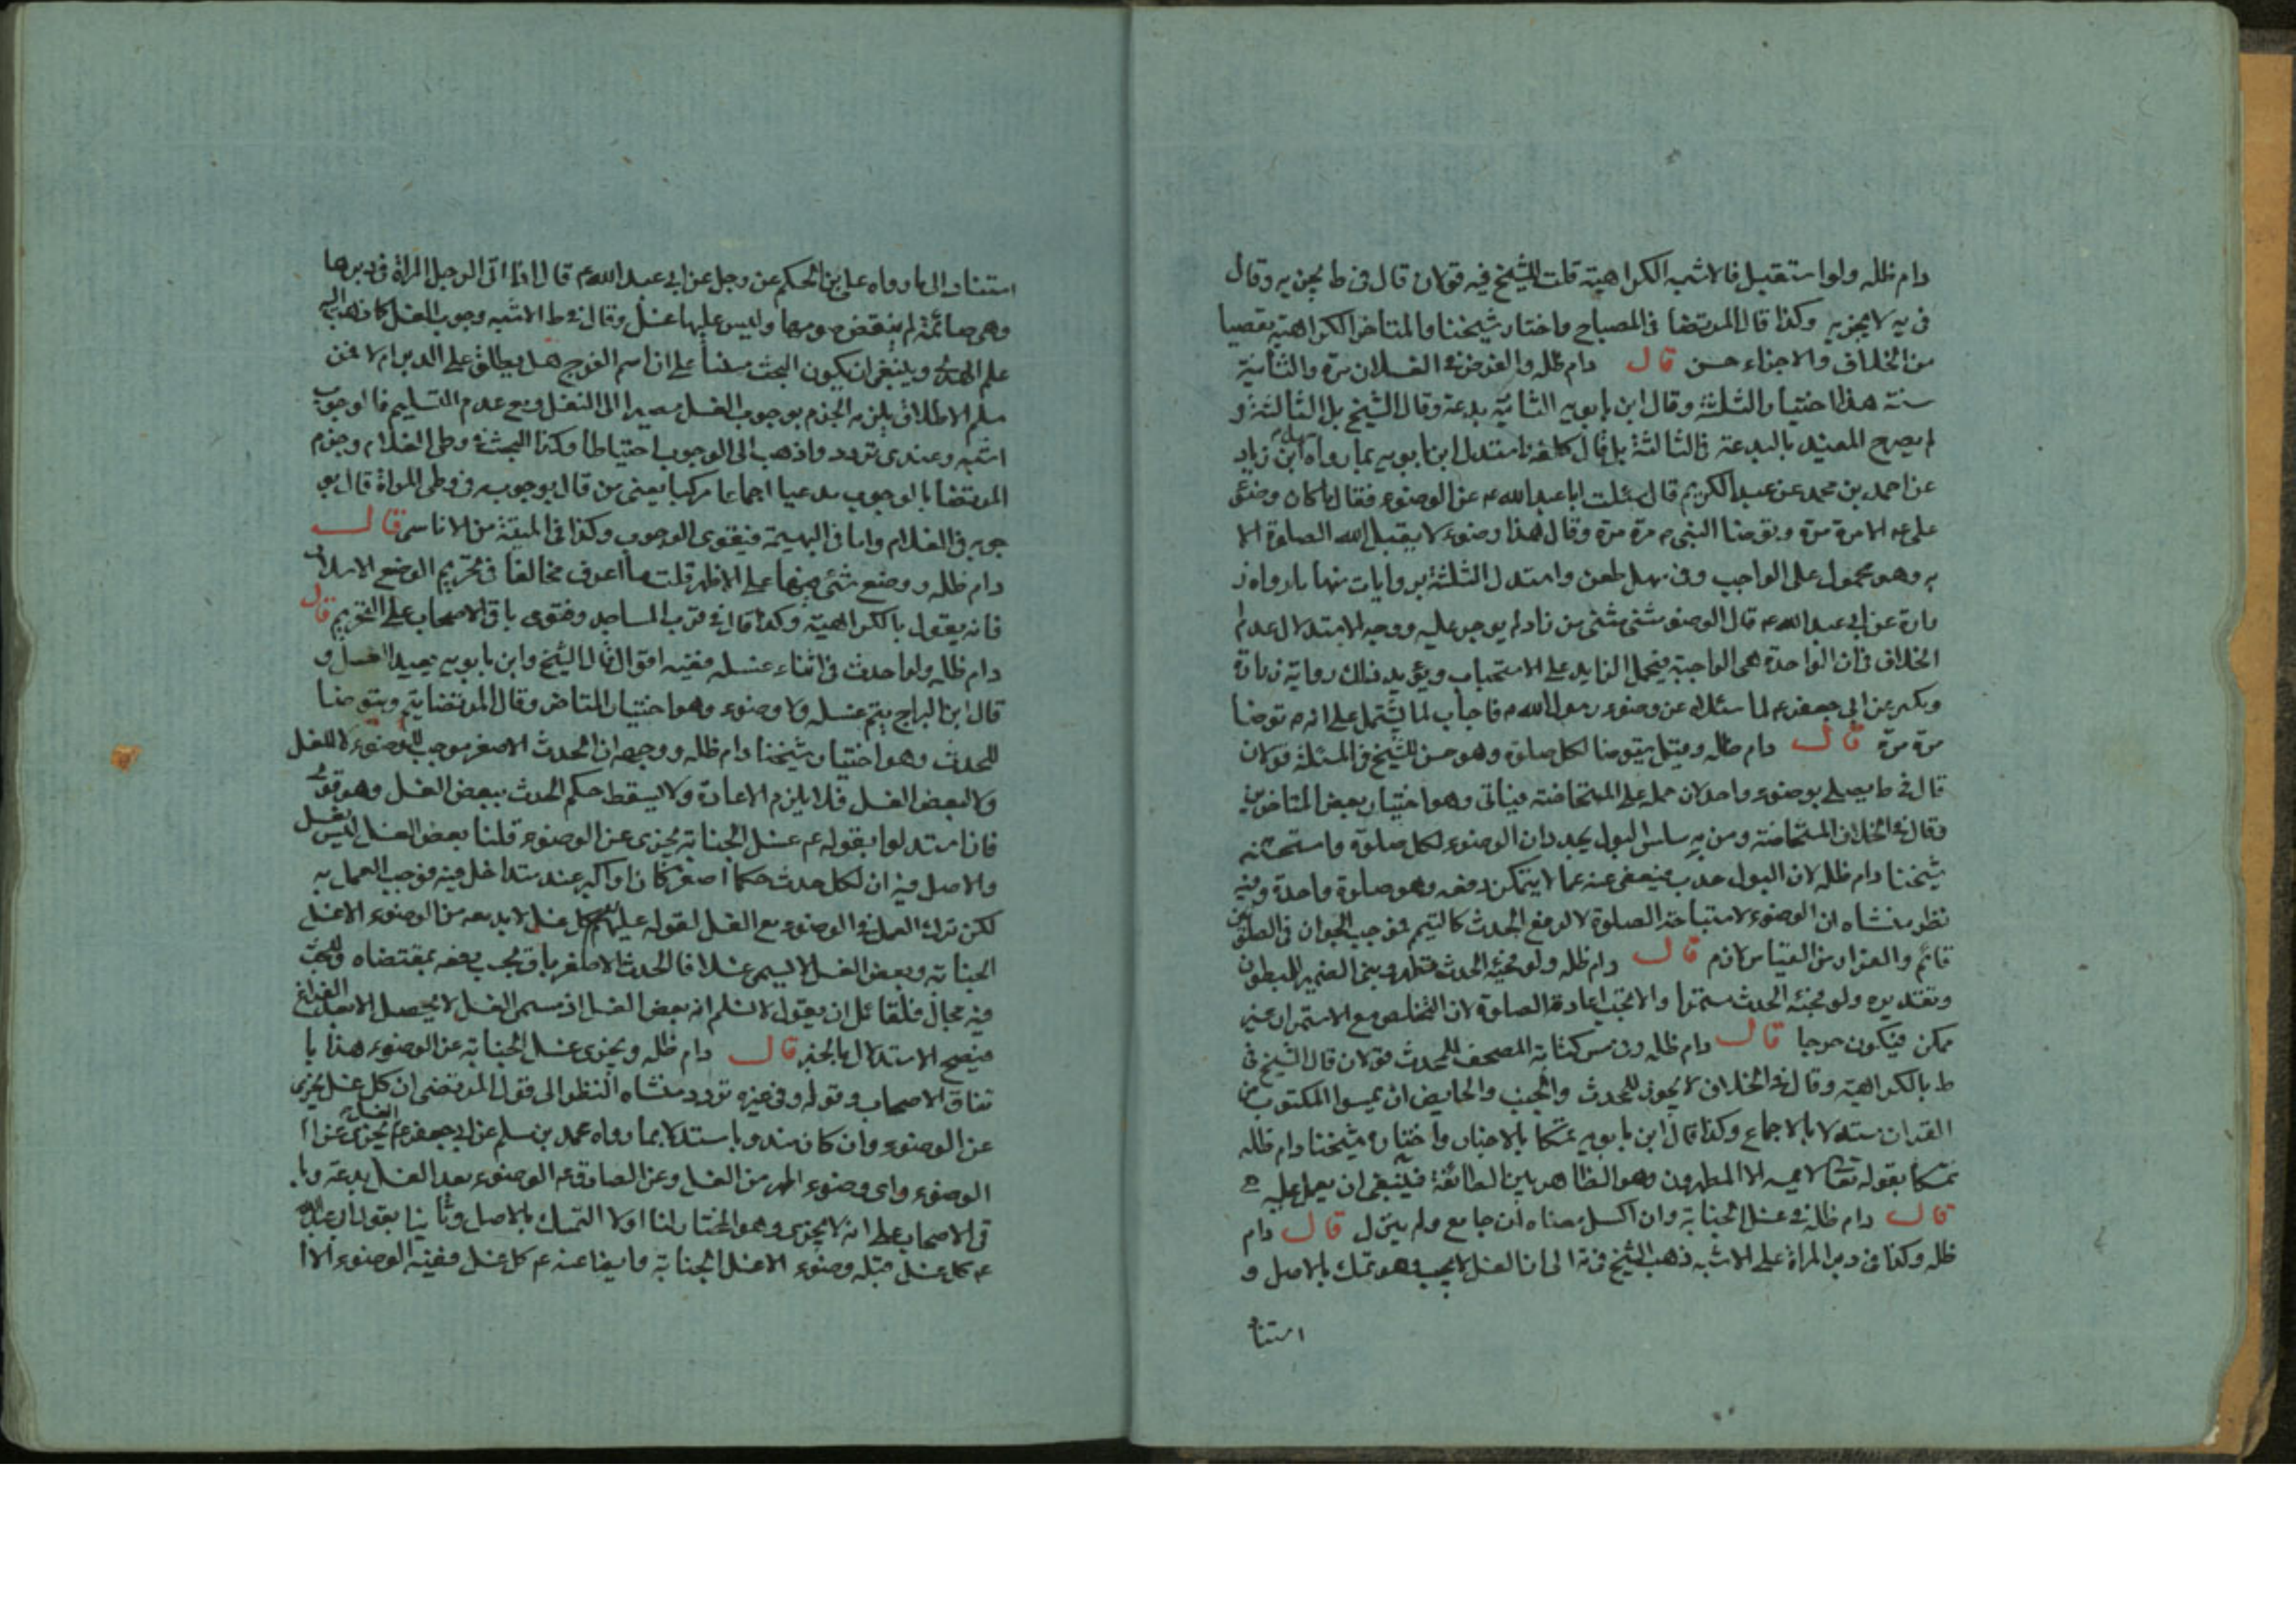 دام ظله ولو استقبل فالاشبه الكراهية قلت للشيخ فيه قولان قال في ط يجزيه وقال
في يه لا يجزيه وكذا قال المرتضا في المصباح واختار شيخنا والمتاخر الكراهية تفصيا
من الخلاف والاجزاء حسن قال دام ظله والفرض في الغسلان مرة والثانية
سنة هذا اختيار الثلثة وقال ابن بابويه الثانية بدعة وقال الشيخ بل الثالثة و
لم يصرح المفيد بالبدعة في الثالثة بل قال كلفة استدل ابن بابويه بما رواه ابن زياد
عن احمد بن محمد عن عبد الكريم قال سئلت ابا عبد الله ع عن الوضوء فقال ما كان وضوء
على ع الا مرة مرة وتوضا النبي ص مرة مرة وقال هذا وضوء لا يقبل الله الصلوة الا
به وهو محمول على الواجب وفي سهل طعن واستدل الثلثة بروايات منها ما رواه ز
رارة عن ابي عبد الله ع قال الوضوء مثنى مثنى من زاد لم يوجر عليه ووجه الاستدلال عدم
الخلاف في ان الواحدة هي الواجبة فيحمل الزايد على الاستحباب ويؤيد ذلك رواية زرارة
وبكير عن ابي جعفر ع لما سئلاه عن وضوء رسول الله ص فاجاب لما يشتمل على انه ص توضا
مرة مرة قال دام ظله وقيل يتوضا لكل صلوة وهو حسن للشيخ في المسئلة قولان
قال في ط يصلي بوضوء واحد لان حمله على المستحاضة قياس وهو اختيار بعض المتاخرين
وقال في الخلاف المستحاضة ومن به سلس البول يجددان الوضوء لكل صلوة واستحسنه
شيخنا دام ظله لان البول حدث فيعفى عنه عما لا يتمكن دفعه وهو صلوة واحدة وفيه
نظر منشاه ان الوضوء لاستباحة الصلوة لا لرفع الحدث كالتيمم فموجب الجواز في الصلوتين
قائم والفرار من القياس لازم قال دام ظله ولو فجئه الحدث تطهر وبنى الضمير للمبطون
وتقديره ولو فجئه الحدث مستمرا والا تجب اعادة الصلوة لان التخلص مع الاستمرار غير
ممكن فيكون حرجا قال دام ظله وفي مس كتابة المصحف للمحدث قولان قال الشيخ في
ط بالكراهية وقال في الخلاف لا يجوز للمحدث والجنب والحايض ان يمسوا المكتوب من
القران مستدلا بالاجماع وكذا قال ابن بابويه تمسكا بالاخبار واختاره شيخنا دام ظله
تمسكا بقوله تعالى لا يمسه الا المطهرون وهو الظاهر بين الطائفة فينبغي ان يعمل عليه
قال دام ظله في غسل الجنابة وان اكسل معناه ان جامع ولم ينزل قال دام
ظله وكذا في دبر المراة على الاشبه ذهب الشيخ في يه الى ان الغسل لا يجب وهو تمسك بالاصل و
استنا
استناد الى ما رواه علي بن الحكم عن رجل عن ابي عبد الله ع قال اذا اتى الرجل المراة في دبرها
وهي صائمة لم ينقض صومها وليس عليها غسل وقال في ط الاشبه وجوب الغسل كما ذهب اليه
علم الهدى وينبغي ان يكون البحث مبنيا على ان اسم الفرج هل يطلق على الدبر ام لا فمن
سلم الاطلاق يلزمه الجزم بوجوب الغسل مصيرا الى النقل ومع عدم التسليم فالوجوب
اشبه وعندي تردد واذهب الى الوجوب احتياطا وكذا البحث في وطى الغلام وجزم
المرتضا بالوجوب مدعيا اجماعا مركبا يعني من قال بوجوبه في وطى المراة قال بو
جوبه في الغلام واما في البهيمة فيقوى الوجوب وكذا في الميتة من الاناس قال
دام ظله ووضع شئ فيها على الاظهر قلت ما اعرف مخالفا في تحريم الوضع الا سلار
فانه يقول بالكراهية وكذا قال في قرب المساجد وفتوى باقي الاصحاب على التحريم قال
دام ظله ولو احدث في اثناء غسله ففيه اقوال قال الشيخ وابن بابويه يعيد الغسل و
قال ابن البراج يتم غسله ولا وضوء وهو اختيار المتاخر وقال المرتضا يتم ويتوضا
للحدث وهو اختيار شيخنا دام ظله ووجهه ان الحدث الاصغر موجب للوضوء لا للغسل
ولا لبعض الغسل فلا يلزم الاعادة ولا يسقط حكم الحدث ببعض الغسل وهو قوي
فان استدلوا بقوله ع غسل الجنابة يجزى عن الوضوء قلنا بعض الغسل ليس بغسل
والاصل فيه ان لكل حدث حكما اصغر كان او اكبر عند تداخل فيه فوجب العمل به
لكن ترك العمل في الوضوء مع الغسل لقوله عليه السلام كل غسل لا بد معه من الوضوء الا غسل
الجنابة وبعض الغسل لا يسمى غسلا فالحدث الاصغر باق يجب رفعه بمقتضاه وللبحث
فيه مجال فلقائل ان يقول لا نسلم انه بعض الغسل اذ مسمى الغسل لا يحصل الا بعد الفراغ
فيصح الاستدلال بالخبر قال دام ظله ويجزى غسل الجنابة عن الوضوء هذا با
تفاق الاصحاب وقوله وفي غيره تردد منشاه النظر الى قول المرتضى ان كل غسل يجزى
عن الوضوء وان كان مندوبا مستدلا بما رواه محمد بن مسلم عن ابي جعفر ع الغسل يجزى عن ا
الوضوء واى وضوء اطهر من الغسل وعن الصادق ع الوضوء بعد الغسل بدعة وبا
قي الاصحاب على انه لا يجزى وهو المختار لنا اولا التمسك بالاصل وثانيا بقول ابي عبد الله
ع كل غسل قبله وضوء الا غسل الجنابة وايضا عنه ع كل غسل ففيه الوضوء الا ا